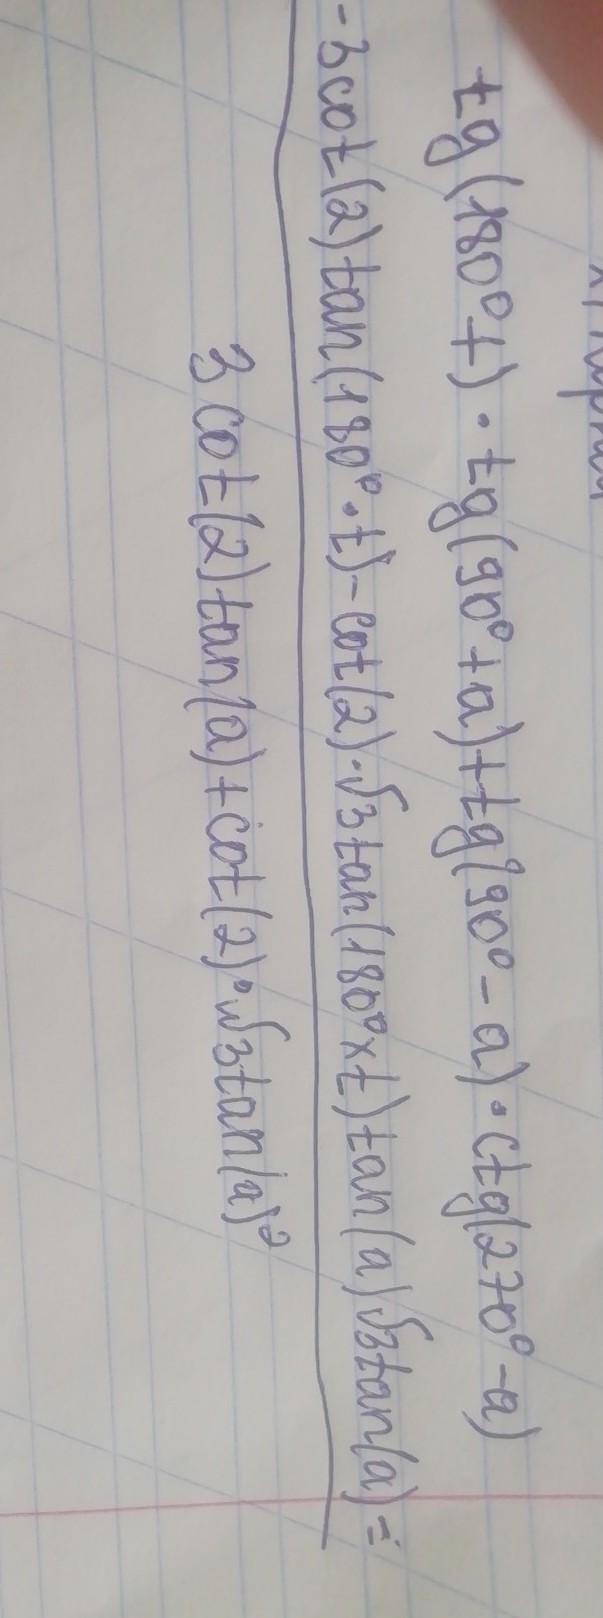 tg(180°t)·tg(90°+a)+tg(90°-a)·ctg(270°-a)
-3cot(2)tan(180°·t)-cot(2)·√3tan(180°×t)tan(a)√3tan(a)=
3cot(2)tan(a)+cot(2)·√3tan(a)²